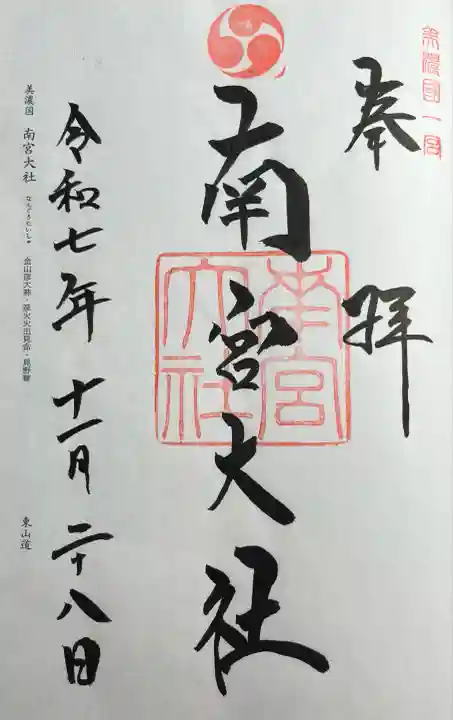 美濃國一宮
奉拝
南宮大社
南宮
大社
令和七年 十一月 二十八日
美濃国 南宮大社 なんぐうたいしゃ 金山彦大神・彦火火出見命・見野命
東山道